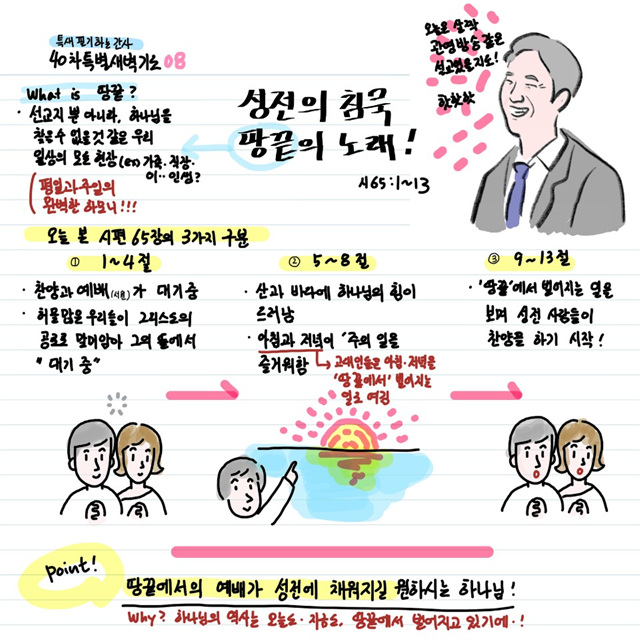 특새 필기하는 간사
40차특별새벽기도 08
What is 땅끝?
· 선교지 뿐 아니라, 하나님을
찾을수 없을것 같은 우리
일상의 모든 현장 (ex) 가족·직장·
이·· 인생?
평일과 주일의
완벽한 하모니!!!
성전의 침묵
땅끝의 노래!
시65:1~13
오늘은 살짝
관영방송 같은
설교였을지도!
핫핫핫
오늘 본 시편 65장의 3가지 구분
① 1~4절
· 찬양과 예배(서원)가 대기중
· 허물많은 우리들이 그리스도의
공로로 말미암아 그의 뜰에서
"대기 중"
② 5~8절
· 산과 바다에 하나님의 힘이
드러남
· 아침과 저녁이 '주의 일을
즐거워함
고대인들은 아침·저녁을
'땅끝에서' 벌어지는
일로 여김
③ 9~13절
· '땅끝'에서 벌어지는 일을
보며 성전 사람들이
찬양을 하기 시작!
Point!
땅끝에서의 예배가 성전에 채워지길 원하시는 하나님!
Why? 하나님의 역사는 오늘도·지금도, 땅끝에서 벌어지고 있기에·!